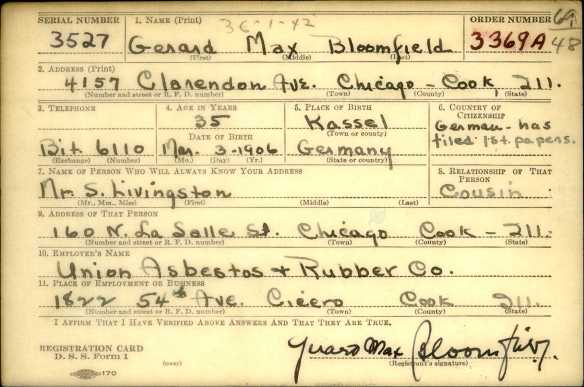 SERIAL NUMBER 1. NAME (Print) ORDER NUMBER
3527 Gerard Max Bloomfield 3369A
(First) (Middle) (Last)
2. ADDRESS (Print)
4157 Clarendon Ave. Chicago - Cook Ill.
(Number and street or R. F. D. number) (Town) (County) (State)
3. TELEPHONE 4. AGE IN YEARS 5. PLACE OF BIRTH 6. COUNTRY OF CITIZENSHIP
35 Kassel German - has
DATE OF BIRTH filed 1st papers.
Bit. 6110 Mar. 3-1906 Germany
(Exchange) (Number) (Mo.) (Day) (Yr.) (State or country)
7. NAME OF PERSON WHO WILL ALWAYS KNOW YOUR ADDRESS 8. RELATIONSHIP OF THAT PERSON
Mr. S. Livingston Cousin
(Mr., Mrs., Miss) (First) (Middle) (Last)
9. ADDRESS OF THAT PERSON
160 N. La Salle St. Chicago Cook - Ill.
(Number and street or R. F. D. number) (Town) (County) (State)
10. EMPLOYER'S NAME
Union Asbestos & Rubber Co.
11. PLACE OF EMPLOYMENT OR BUSINESS
1822 54th Ave. Cicero Cook Ill.
(Number and street or R. F. D. number) (Town) (County) (State)
I AFFIRM THAT I HAVE VERIFIED ABOVE ANSWERS AND THAT THEY ARE TRUE.
REGISTRATION CARD
D. S. S. Form 1 (over) Max Bloomfield
170 (Registrant's signature)